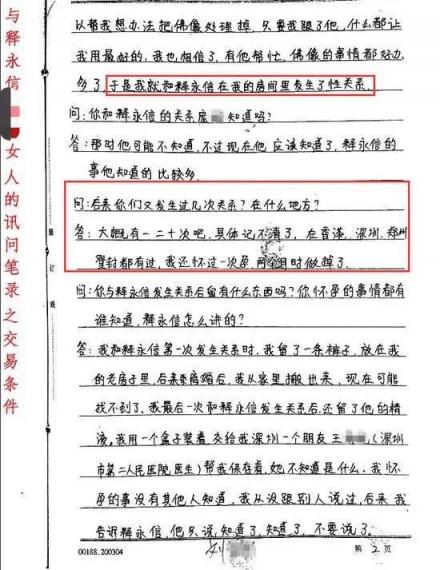 与释永信
女人的讯问笔录之交易条件
以帮我想办法把佛像处理掉，只要我跟了他，什么都让
我用最好的，我也相信了，有他帮忙，佛像的事情都好办
多了，于是我就和释永信在我的房间里发生了性关系。
问：你和释永信的关系庞 知道吗？
答：那时他可能不知道，不过现在他应该知道了，释永信的
事他知道的比较多。
问：后来你们又发生过几次关系？在什么地方？
答：大概有一二十次吧，具体记不清了，在香港、深圳、郑州
登封都有过，我还怀过一次孕，两个月时做掉了。
问：你与释永信发生关系后留有什么东西吗？你怀孕的事情都有
谁知道，释永信怎么讲的？
答：我和释永信第一次发生关系时，我留了一条裤子，放在我
的老房子里，后来离婚后，我从家里搬出来，现在可能
找不到了，我最后一次和释永信发生关系后还留了他的精
液，我用一个盒子装着交给我深圳一个朋友王 （深圳
市第二人民医院医生）帮我保存着，她不知道是什么。我怀
孕的事没有其他人知道，我从没跟别人说过，后来我
告诉释永信，他只说知道了，知道了，不要说了。
装
订
线
00188.200304
刘
第 2 页